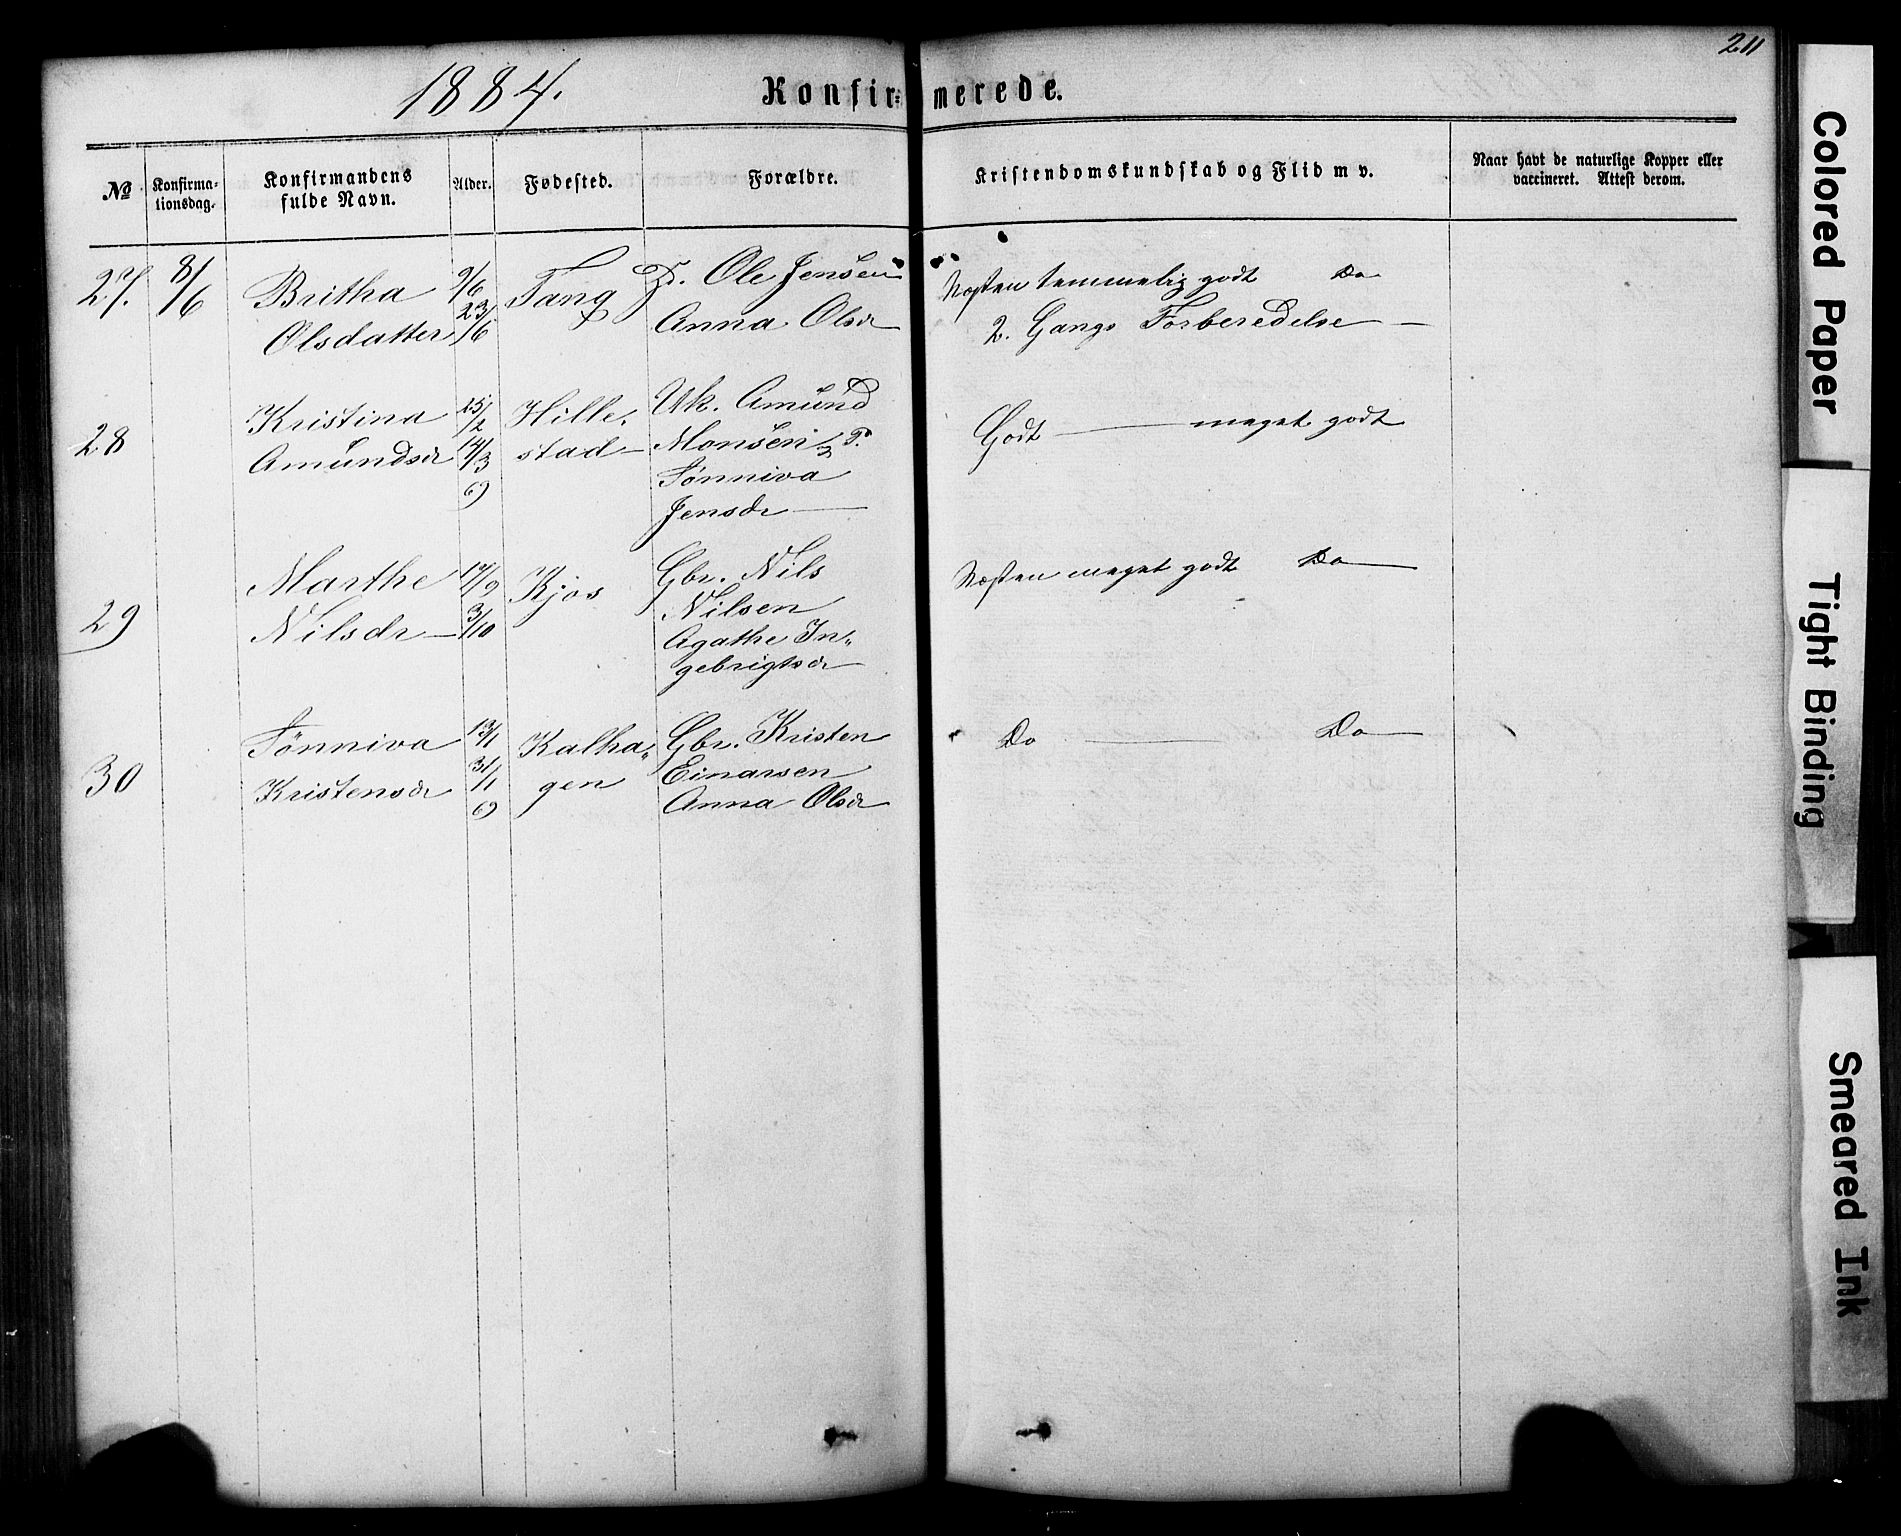 211
1884.
Konfir= merede.
№
Konfirma-
tionsdag.
Konfirmandens
fulde Navn.
Alder.
Fødested.
Forældre.
Kristendomskundskab og Flid m v.
Naar havt de naturlige Kopper eller
vaccineret. Attest derom.
27. 8/6 Britha 9/6 Tang Ole Jensen Næsten temmelig godt Do
Olsdatter 23/6 Anna Olsdr 2. Gangs Forberedelse
28 Kristina 25/2 Hille- Uk. Amund Godt meget godt
Amundsdr 14/3 stad Monsen
69 Sønniva
Jensdr
29 Marthe 17/9 Kjos Gbr. Nils Næsten meget godt Do
Nilsdr 3/10 Nilsen
Agathe In„
gebrigtsdr
30 Sønniva 13/1 Kalha„ Gbr. Kristen Do Do
Kristensdr 31/1 gen Einarsen
69 Anna Olsdr
Colored Paper
Tight Binding
Smeared Ink